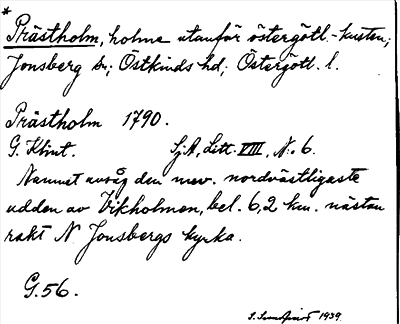 *
Prästholm, holme utanför östergötl.-kusten;
Jonsberg sn; Östkinds hd; Östergötl. l.
Prästholm 1790.
G. Klint. Sj.A, Litt. VIII, N. 6.
Namnet avsåg den nuv. nordvästligaste
udden av Vikholmen, bel. 6,2 km. nästan
rakt N Jonsbergs kyrka.
G. 56.
1939